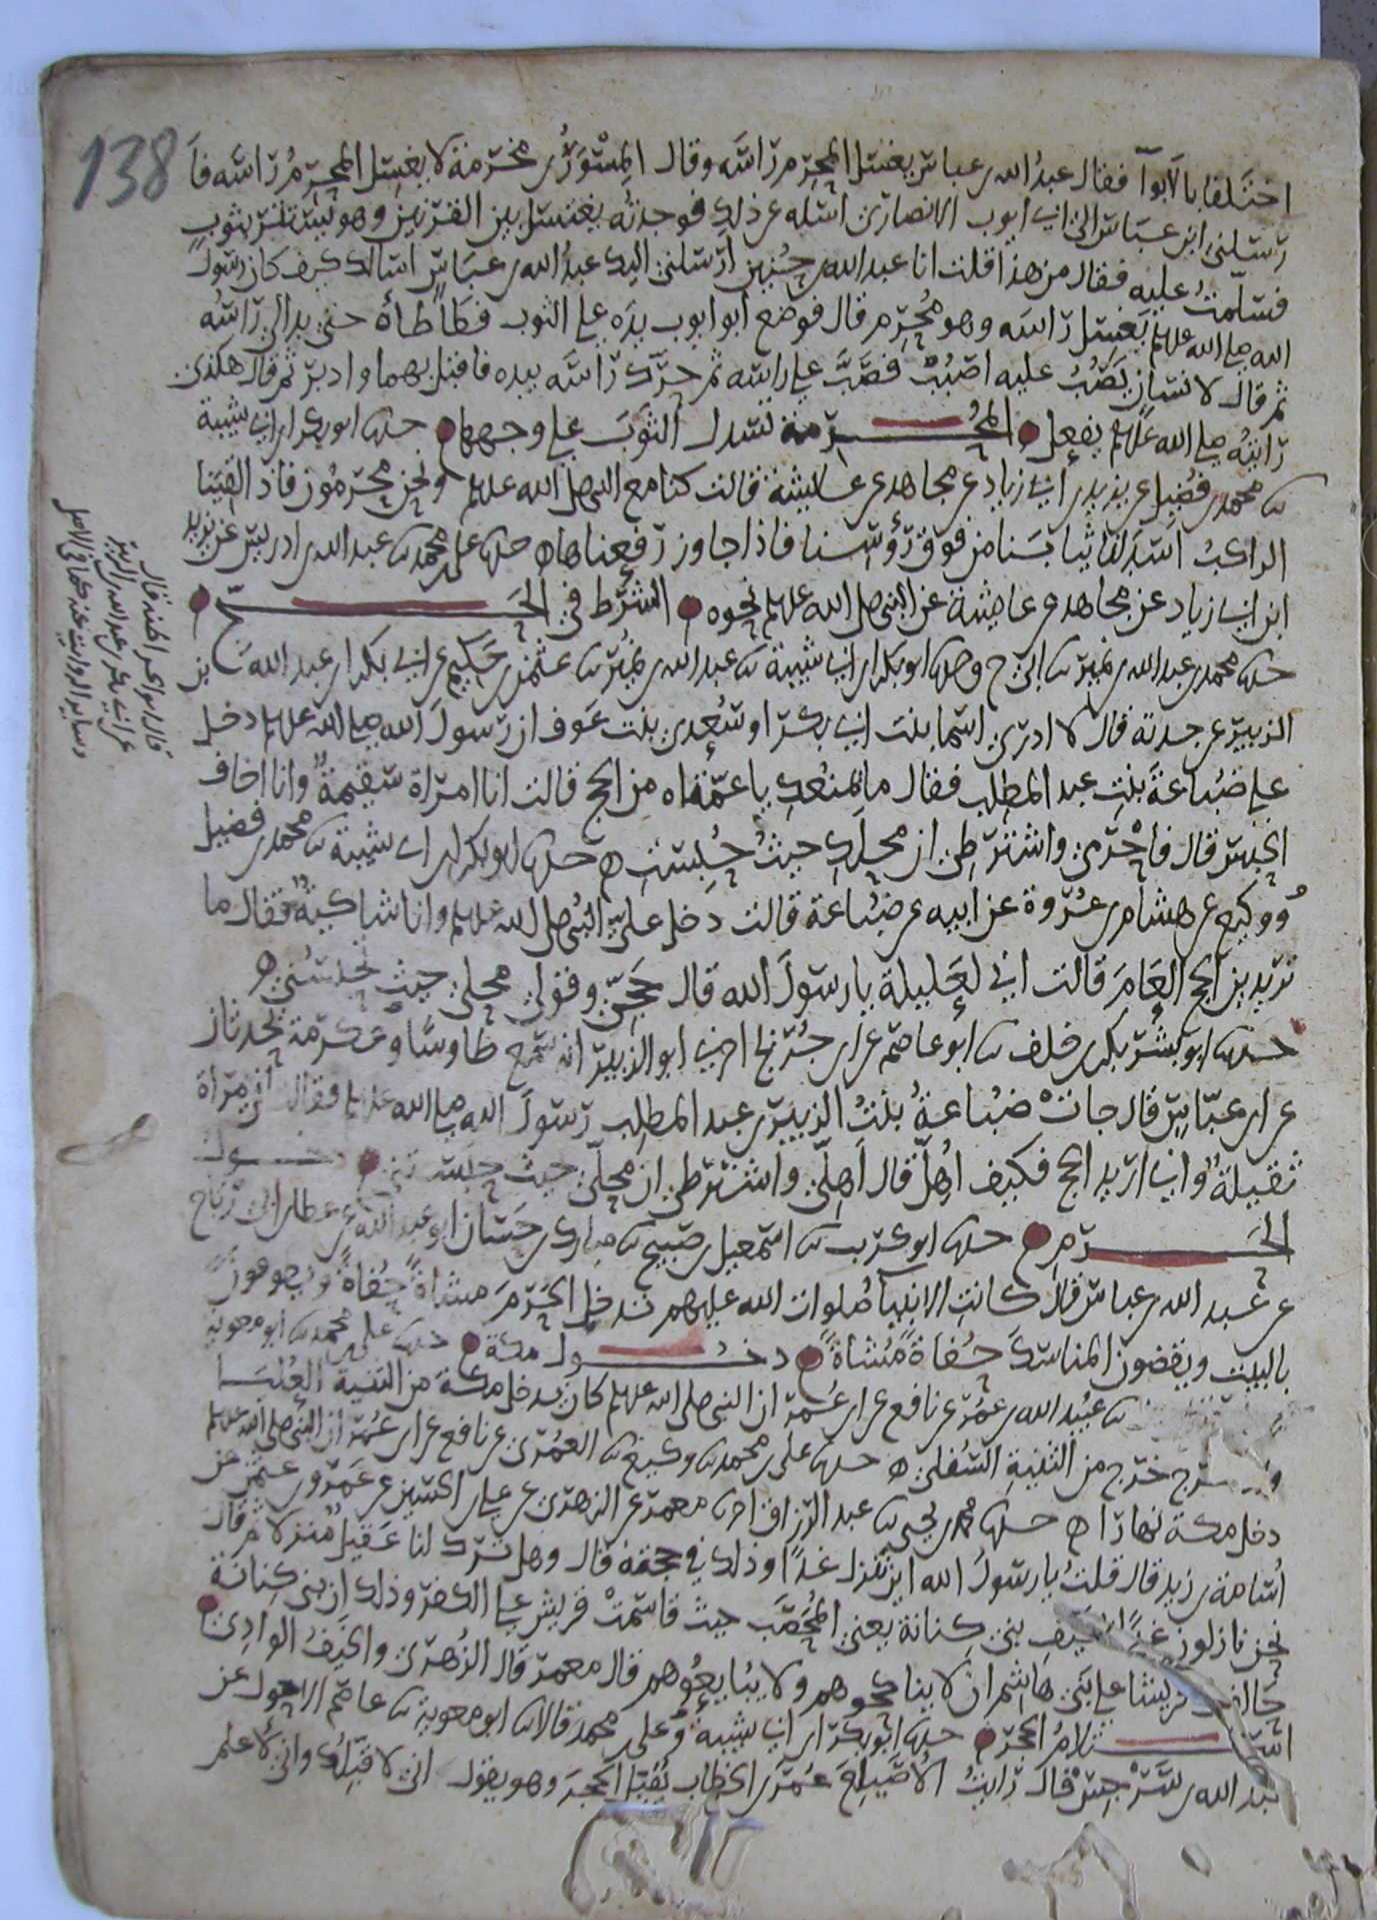 138
اختلفا بالابوآ فقال عبد الله بن عباس يغسل المحرم راسه وقال المسور بن مخرمة لا يغسل المحرم راسه فا
رسلني ابن عباس الى ابي ايوب الانصاري اسله عن ذلك فوجدته يغتسل بين القرنين وهو يستتر بثوب
فسلمت عليه فقال من هذا قلت انا عبد الله بن حنين ارسلني اليك عبد الله بن عباس اسالك كيف كان رسول
الله صلى الله عليه وسلم يغسل راسه وهو محرم قال فوضع ابو ايوب يده على الثوب فطاطأه حتى بدا لي راسه
ثم قال لانسان يصب عليه اصبب فصب على راسه ثم حرك راسه بيده فاقبل بهما وادبر ثم قال هكذى
رايته صلى الله عليه وسلم يفعل المحرمة تسدل الثوب على وجهها حدثنا ابو بكر بن ابي شيبة
ثنا محمد بن فضيل عن يزيد بن ابي زياد عن مجاهد عن عائشة قالت كنا مع النبي صلى الله عليه وسلم ونحن محرمون فاذا لقينا
الراكب اسدلنا ثيابنا من فوق رؤوسنا فاذا جاوز رفعناها حدثنا علي بن محمد ثنا عبد الله بن ادريس عن يزيد
ابن ابي زياد عن مجاهد عن عائشة عن النبي صلى الله عليه وسلم نحوه الشرط في الحج
حدثنا محمد بن عبد الله بن نمير ثنا ابي ح وحدثنا ابو بكر بن ابي شيبة ثنا عبد الله بن نمير ثنا عثمن بن حكيم عن ابي بكر بن عبد الله بن
الزبير عن جدته قال لا ادري اسما بنت ابي بكر او سعدى بنت عوف ان رسول الله صلى الله عليه وسلم دخل
على ضباعة بنت عبد المطلب فقال ما يمنعك يا عمتاه من الحج قالت انا امراة سقيمة وانا اخاف
الحبس قال فاحرمي واشترطي ان محلك حيث حبست حدثنا ابو بكر بن ابي شيبة ثنا محمد بن فضيل
ووكيع عن هشام بن عروة عن ابيه عن ضباعة قالت دخل علي النبي صلى الله عليه وسلم وانا شاكية فقال ما
تريدين الحج العام قالت اني لعليلة يا رسول الله قال حجي وقولي محلي حيث تحبسني
حدثنا ابو بشر بكر بن خلف ثنا ابو عاصم عن ابن جريج اخبرني ابو الزبير انه سمع طاوسا وعكرمة يحدثان
عن ابن عباس قال جات ضباعة بنت الزبير بن عبد المطلب رسول الله صلى الله عليه وسلم فقالت اني مراة
ثقيلة واني اريد الحج فكيف اهل قال اهلي واشترطي ان محلي حيث حبستني دخول
الحرم حدثنا ابو كريب ثنا اسمعيل بن صبيح ثنا مبارك بن حسان ابو عبد الله عن عطا بن ابي رباح
عن عبد الله بن عباس قال كانت الانبيآ صلوات الله عليهم تدخل الحرم مشاة حفاة ويطوفون
بالبيت ويقضون المناسك حفاة مشاة دخول مكة حدثنا علي بن محمد ثنا ابو معوية
ثنا عبيد الله بن عمر عن نافع عن ابن عمر ان النبي صلى الله عليه وسلم كان يدخل مكة من الثنية العليا
خرج من الثنية السفلى حدثنا علي بن محمد ثنا وكيع ثنا العمري عن نافع عن ابن عمر ان النبي صلى الله عليه وسلم
دخل مكة نهارا حدثنا محمد بن يحيى ثنا عبد الرزاق اخبرنا معمر عن الزهري عن علي بن الحسين عن عمرو بن عثمن عن
اسامة بن زيد قال قلت يا رسول الله اين تنزل غدا وذلك في حجته قال وهل ترك لنا عقيل منزلا ثم قال
نحن نازلون غدا بخيف بني كنانة يعني المحصب حيث قاسمت قريش على الكفر وذلك ان بني كنانة
حالفت قريشا على بني هاشم ان لا يناكحوهم ولا يبايعوهم قال معمر قال الزهري والخيف الوادي
استلام الحجر حدثنا ابو بكر بن ابي شيبة وعلي بن محمد قالا ثنا ابو معوية ثنا عاصم الاحول عن
عبد الله بن سرجس قال رايت الاصيلع عمر بن الخطاب يقبل الحجر وهو يقول اني لاقبلك واني لاعلم